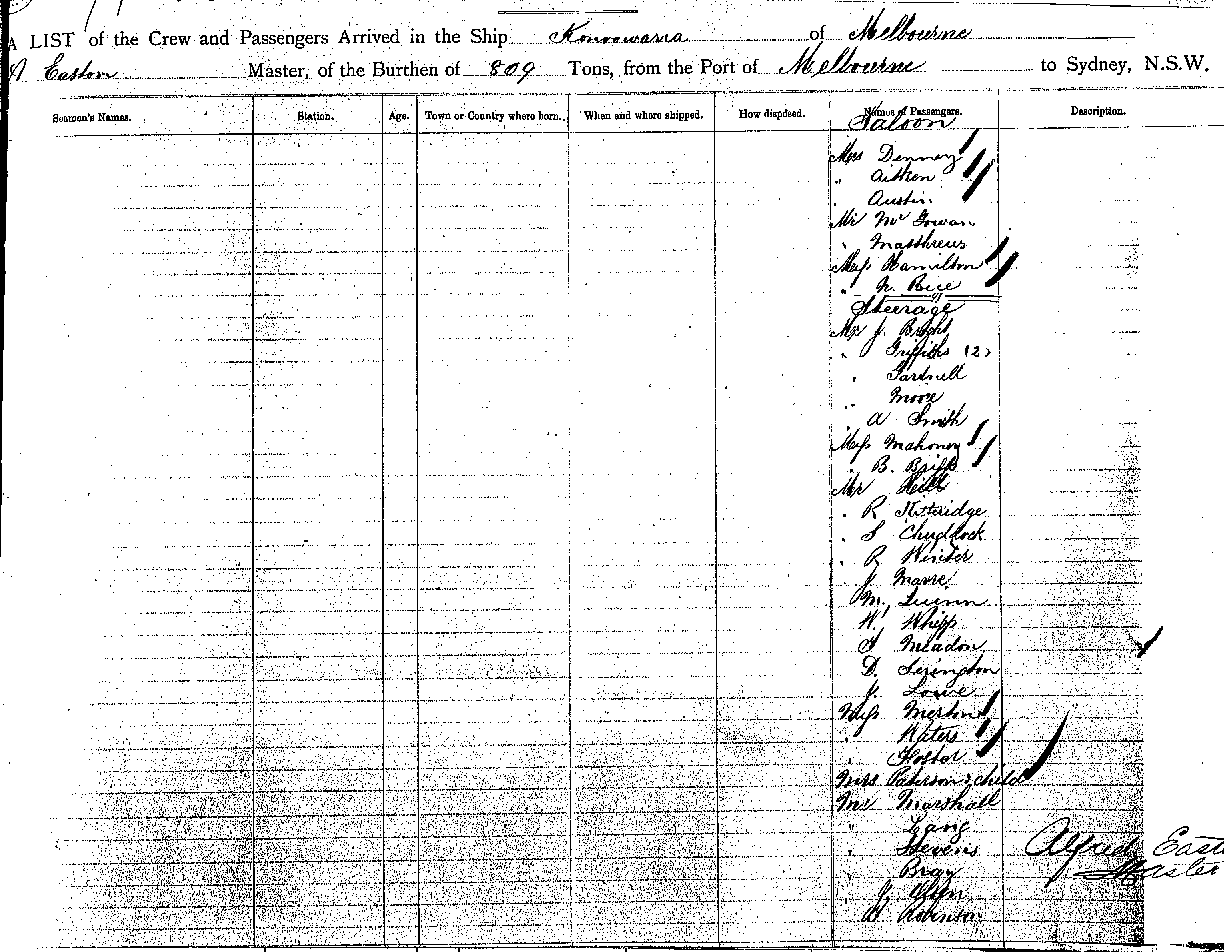 A LIST of the Crew and Passengers Arrived in the Ship Konoowarra of Melbourne
A Easton Master, of the Burthen of 809 Tons, from the Port of Melbourne to Sydney, N.S.W.
Seamen's Names. Station. Age. Town or Country where born. When and where shipped. How disposed. Names of Passengers. Description.
Saloon
Denney
" Aitken
" Austin
Mr McGowan
" Matthews
Miss Hamilton
" Rice
Steerage
J. Bright
" Griffiths (2)
"
" Moore
" A Smith
Miss Mahoney
" B.
Mr Hill
" R Kitteridge
" S
" R Winter
J
M. Quinn
W. Whipp
Meadon
D.
J. Lowe
Miss
" Waters
"
Mrs Paterson & child
Mr Marshall
" Lang
" Stevens Alfred East
Bray Master
J
Robinson